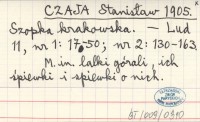 CZAJA Stanisław 1905.
Szopka krakowska. – Lud
11, nr 1: 17-50; nr 2: 130-163.
M. in. lalki górali, ich
śpiewki i śpiewki o nich.